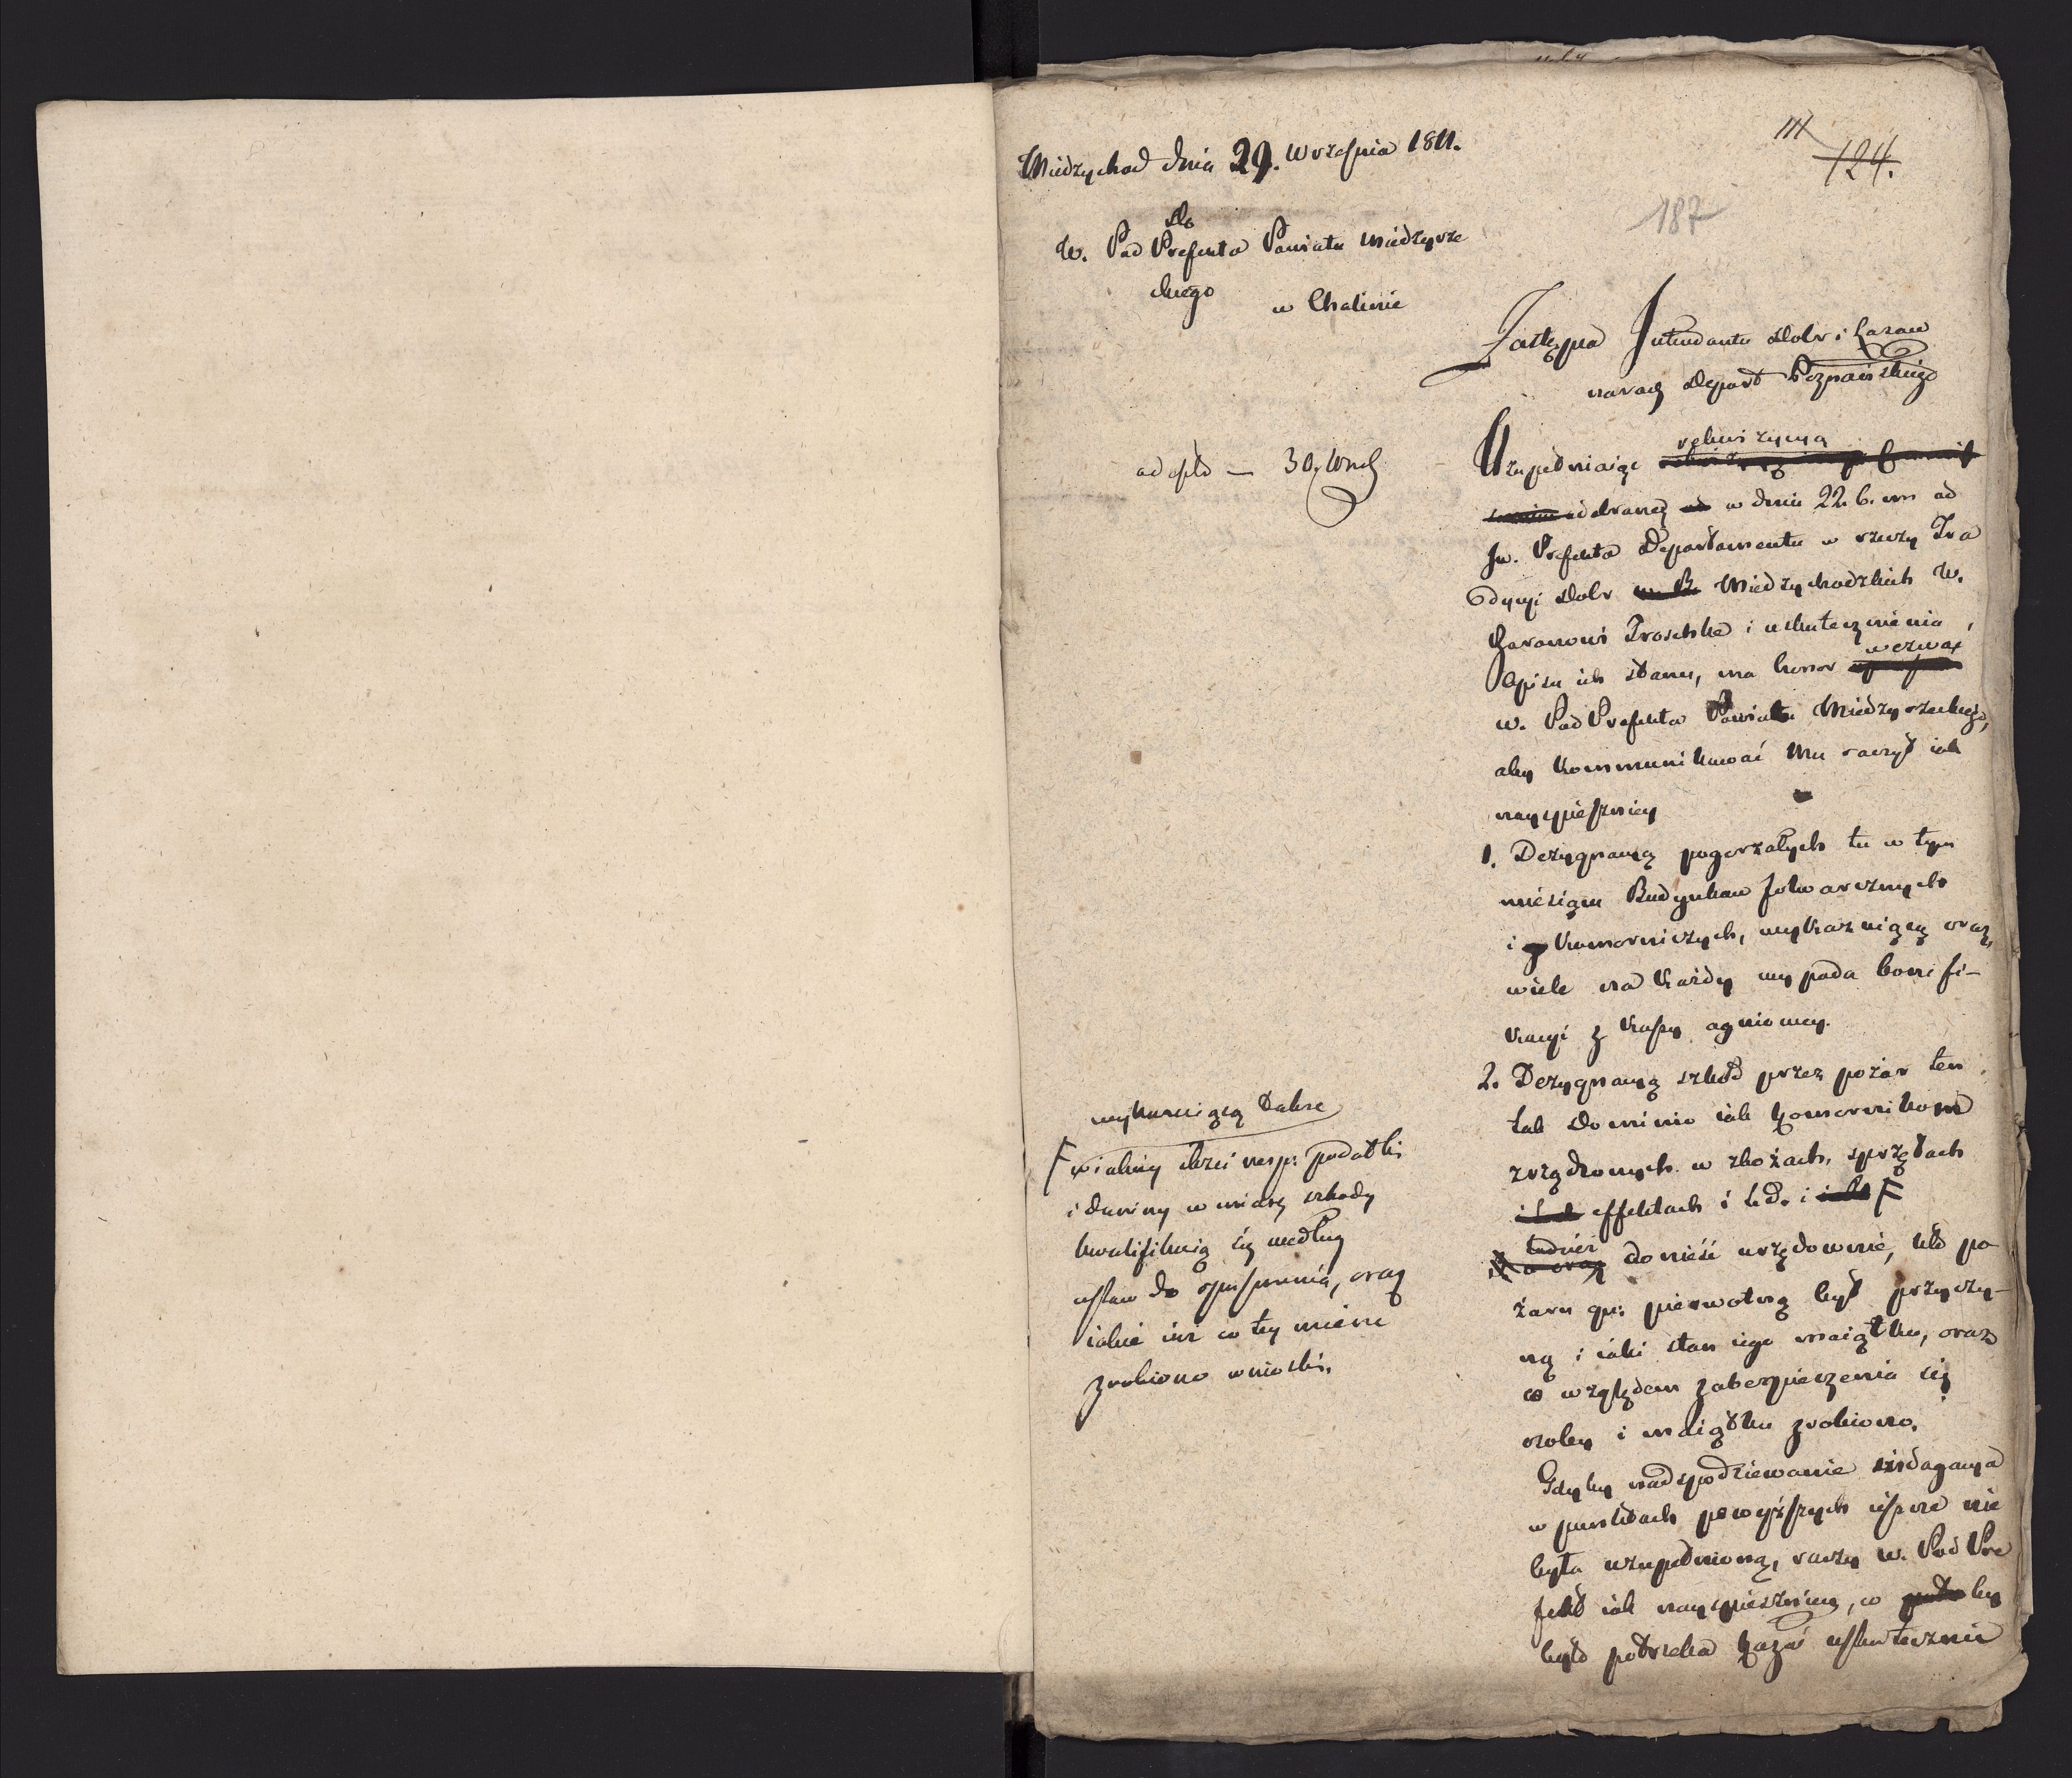 Miedzychod dnia 29. Wrzesnia 1811.
III
124.
187
do
W. Pod Prefekta Powiatu Miedzyrze
ckiego
w Chalinie
Zastępca Intendenta Dobr i Lasow
narod Depart Poznańskiego
adopld — 30. Wrześ
rekwizycyą
Uzupełniaiąc
odebraną w dniu 22. b. m od
Jw. Prefekta Departamentu w rzeczy Tra
dycyi Dobr Miedzychodzkich W.
Baronowi Troschke i uskutecznienia
wezwać
Opisu ich stanu, ma honor
W. Pod Prefekta Powiatu Miedzyrzeckiego,
aby kommunikować mu raczył iak
nayspieszniey
1. Dezygnacyą pogorzałych tu w tym
miesiącu Budynkow folwarcznych
i komorniczych, wykazuiącą oraz,
wiele na każdy wypada bonifi-
kacyi z kassy ogniowey.
2. Dezygnacyą szkod przez pożar ten
tak Dominio iak komornikom
zrządzonych w zbożach, sprzętach
effektach i t.d. i F
tudzież
donieść urzędownie, kto po
żaru qu: pierwotną był przyczy-
ną i iaki stan iego maiątku, oraz
co względem zabezpieczenia iey
osoby i maiątku zrobiono.
Gdyby nadspodziewanie indagacya
w punktach powyższych ieszcze nie
była uzupełnioną, raczy W. Pod Pre
fekt iak nayspieszniey, co by
było potrzeba kazać uskutecznić
wykazuiącą także
F wieluiy części resp: podatki
i daniny w miarę szkody
kwalifikuią się według
ustaw do opuszczenia, oraz
iakie iuż w tey mierze
zrobiono wnioski.